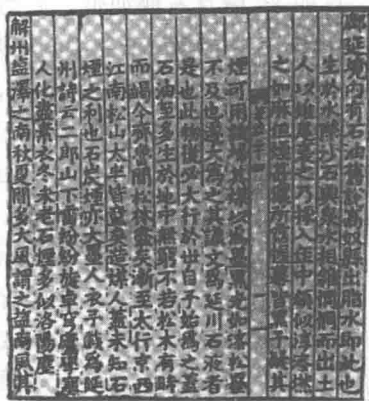 鄜延境內有石油舊說高奴縣出脂水即此也
生於水際沙石與泉水相雜惘惘而出土
人以雉尾裛之乃採入缶中頗似淳漆然
之如麻但煙甚濃所霑幄幕皆黑予疑其
煙可用試掃其煤以為墨黑光如漆松墨
不及也遂大為之其識文為延川石液者
是也此物後必大行於世自予始為之蓋
石油至多生於地中無窮不若松木有時
而竭今齊魯間松林盡矣漸至太行京西
江南松山太半皆童矣造煤人蓋未知石
煙之利也石炭煙亦大墨人衣予戲為延
州詩云二郎山下雪紛紛旋卓穹廬學塞
人化盡素衣冬未老石煙多似洛陽塵
解州鹽澤之南秋夏間多大風謂之鹽南風其